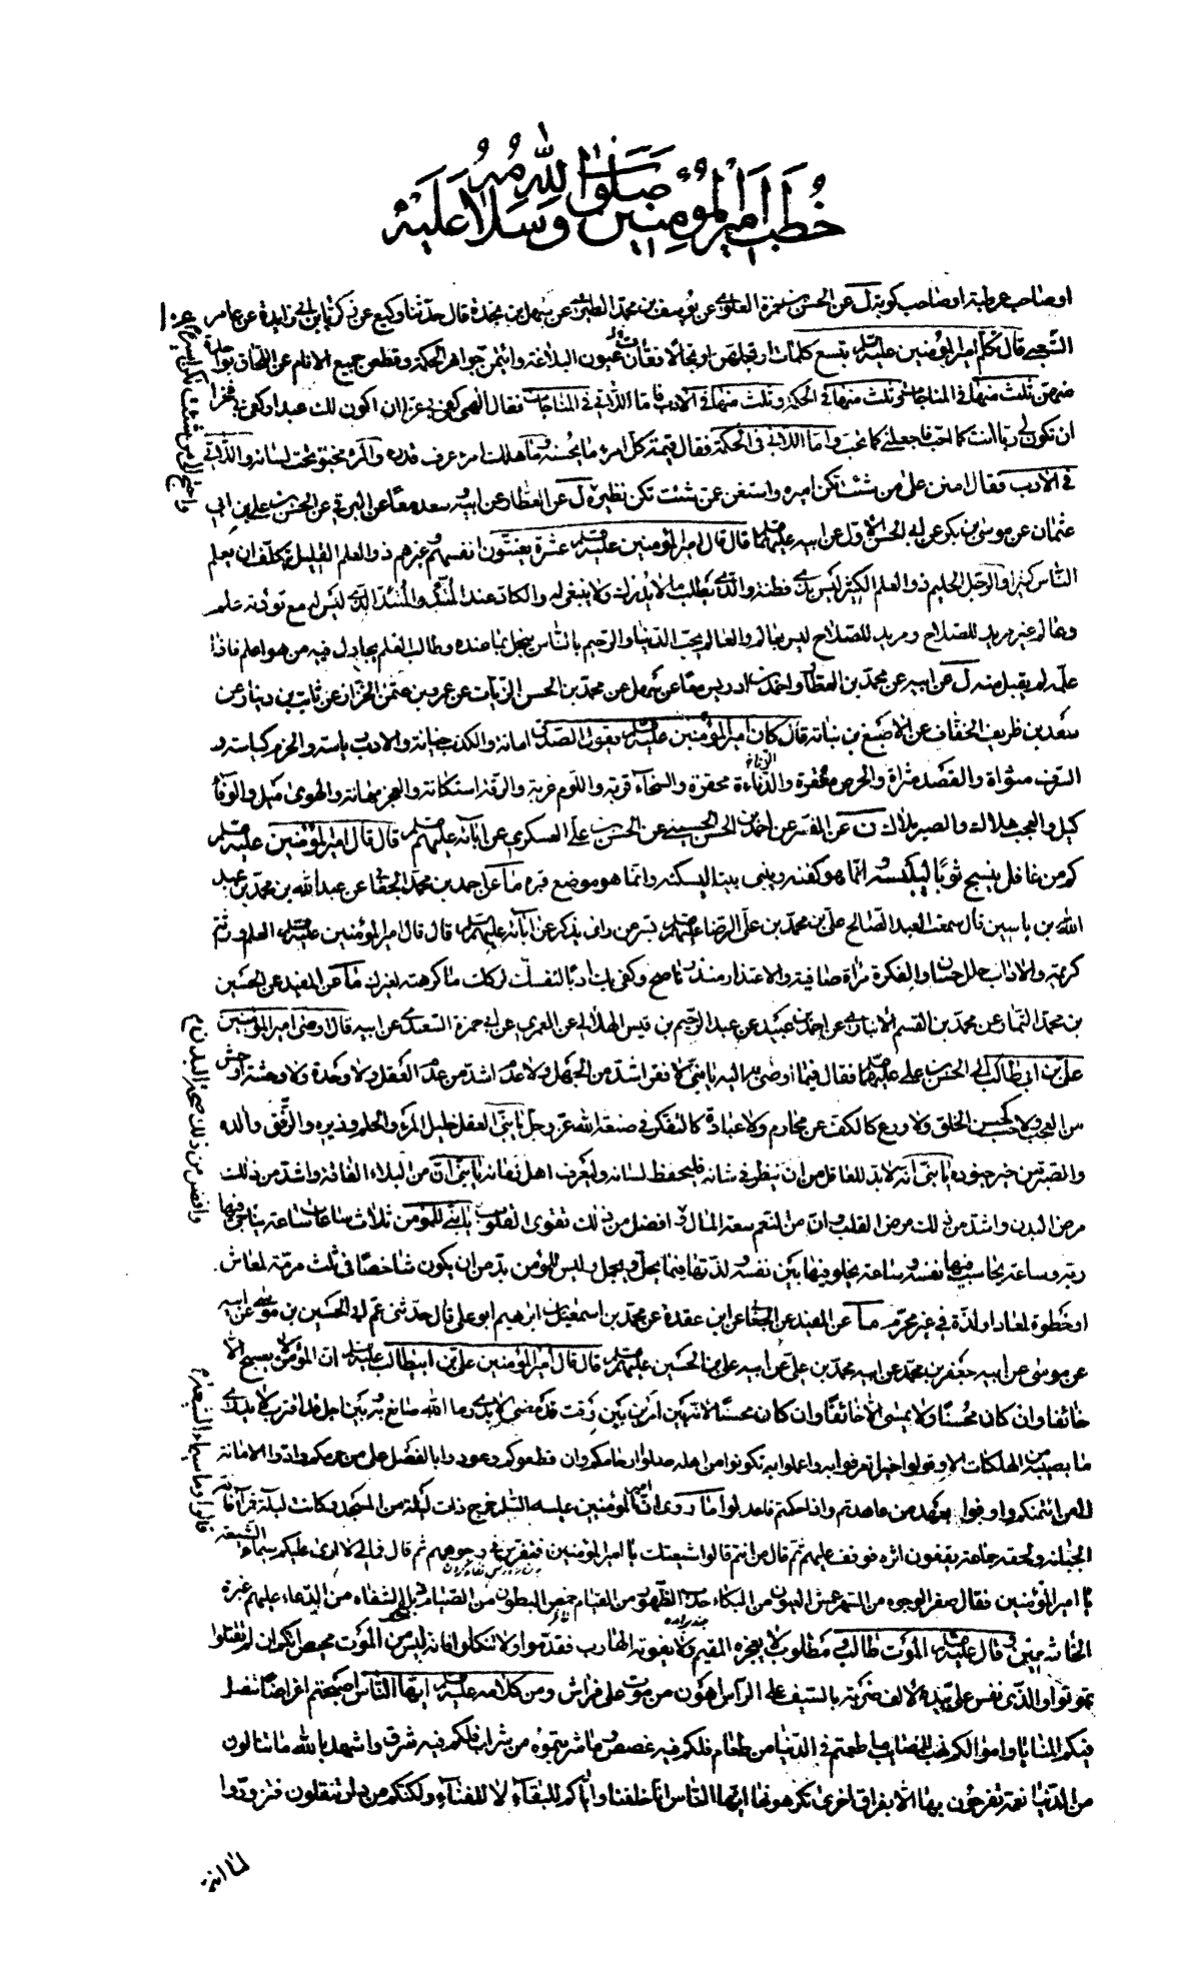 خُطَب اَمیرِ الْمُؤْمِنین صَلَواتُ اللهِ وَسَلامُهُ عَلَیْهِ
او صاحب عرطبة او صاحب كوبة ل عن الحسن بن حمزة العلوي عن يوسف بن محمد الطبري عن سهل بن نجدة قال حدثنا وكيع عن زكريا بن ابي زايدة عن عامر
الشعبي قال تكلم امير المؤمنين عليه السلم بتسع كلمات ارتجلهن ارتجالا فقأن عيون البلاغة وايتمن جواهر الحكمة وقطعن جميع الانام عن اللحاق بواحدة
منهن ثلث منها في المناجات وثلث منها في الحكمة وثلث منها في الادب فاما اللاتي في المناجات فقال الهي كفى بي عزا ان اكون لك عبدا وكفى بي فخرا
ان تكون لي ربا انت كما احب فاجعلني كما تحب واما اللاتي في الحكمة فقال قيمة كل امرء ما يحسنه وما هلك امرء عرف قدره والمرء مخبو تحت لسانه واللاتي
في الادب فقال امنن على من شئت تكن اميره واستغن عمن شئت تكن نظيره ل عن العطار عن ابيه وسعد معا عن البرقي عن الحسن بن علي بن ابي
عثمان عن موسى بن بكر عن ابي الحسن الاول عن ابيه عليهما السلم قال قال امير المؤمنين عليه السلم عشرة يعنتون انفسهم وغيرهم ذو العلم القليل يتكلف ان يعلم
الناس كثيرا والرجل الحليم ذو العلم الكثير ليس بذي فطنة والذي يطلب ما لا يدرك ولا ينبغي له والكاد عند المتئد والمتئد الذي ليس له مع تؤدته علم
وعالم غير مريد للصلاح ومريد للصلاح ليس بعالم والعالم يحب الدنيا والرحيم بالناس يبخل بما عنده وطالب العلم يجادل فيه من هو اعلم فاذا
علمه لم يقبل منه ل عن ابيه عن محمد بن العطار واحمد بن ادريس معا عن سهل عن محمد بن الحسن الزيات عن عمرو بن عثمن الخزاز عن ثابت بن دينار عن
سعد بن طريف الخفاف عن الاصبغ بن نباتة قال كان امير المؤمنين عليه السلم يقول الصدق امانة والكذب خيانة والادب رياسة والحزم كياسة و
السرف مثواة والقصد مثراة والحرص مفقرة والدناءة محقرة والسخاء قربة واللوم غربة والرقة استكانة والعجز مهانة والهوى ميل والوفاء
كيل والعجب هلاك والصبر ملاك ن عن المفسر عن احمد بن الحسن الحسيني عن الحسن بن علي العسكري عن ابائه عليهم السلم قال قال امير المؤمنين عليه السلم
كم من غافل ينسج ثوبا ليلبسه وانما هو كفنه ويبني بيتا ليسكنه وانما هو موضع قبره ما عن احمد بن محمد الجعفا عن عبد الله بن محمد بن عبيد
الله بن ياسين قال سمعت العبد الصالح علي بن محمد بن علي الرضا عليهم السلم بسر من راى يذكر عن ابائه عليهم السلم قال قال امير المؤمنين عليه السلم العلم وراثة
كريمة والاداب حلل حسان والفكرة مراة صافية والاعتذار منذر ناصح وكفى بك ادبا لنفسك تركك ما كرهته لغيرك ما عن المفيد عن الحسين
بن محمد التمار عن محمد بن القسم الانباري عن احمد بن عبيد عن عبد الرحيم بن قيس الهلالي عن العمري عن ابي حمزة السعدي عن ابيه قال اوصى امير المؤمنين
علي بن ابي طالب الى الحسن بن علي عليهما السلم فقال فيما اوصى به اليه يا بني لا فقر اشد من الجهل ولا عدم اشد من عدم العقل ولا وحدة ولا وحشة اوحش
من العجب ولا حسب كحسن الخلق ولا ورع كالكف عن محارم ولا عبادة كالتفكر في صنعة الله عز وجل يا بني العقل خليل المرء والحلم وزيره والرفق والده
والصبر من خير جنوده يا بني انه لا بد للعاقل من ان ينظر في شانه فليحفظ لسانه وليعرف اهل زمانه يا بني ان من البلاء الفاقة واشد من ذلك
مرض البدن واشد من ذلك مرض القلب وان من النعم سعة المال وافضل من ذلك تقوى القلوب يا بني للمؤمن ثلاث ساعات ساعة يناجي فيها
ربه وساعة يحاسب فيها نفسه وساعة يخلو فيها بين نفسه ولذتها فيما يحل ويجمل وليس للمؤمن بد من ان يكون شاخصا في ثلث مرمة لمعاش
او خطوة لمعاد او لذة في غير محرم ما عن المفيد عن الجعا عن ابن عقدة عن محمد بن اسمعيل بن ابرهيم ابو علي قال حدثني عم ابي الحسين بن موسى عن ابيه
عن موسى عن ابيه جعفر بن محمد عن ابيه محمد بن علي عن ابيه علي بن الحسين عليهم السلم قال قال امير المؤمنين علي بن ابيطالب عليه السلم ان المؤمن لا يصبح الا
خائفا وان كان محسنا ولا يمسي الا خائفا وان كان محسنا لانه بين امرين بين وقت قد مضى لا يدري ما الله صانع به وبين اجل قد اقترب لا يدري
ما يصيبه من الهلكات الا وقولوا خيرا تعرفوا به واعملوا به تكونوا من اهله صلوا ارحامكم وان قطعوكم وعودوا بالفضل على من حرمكم وادوا الامانة
الى من ائتمنكم واوفوا بعهد من عاهدتم واذا حكمتم فاعدلوا ما روى ان امير المؤمنين عليه السلم خرج ذات ليلة من المسجد وكانت ليلة قمراء فام
الجبانة ولحقه جماعة يقفون اثره فوقف عليهم ثم قال من انتم قالوا شيعتك يا امير المؤمنين فتفرس في وجوههم ثم قال فما لي لا ارى عليكم سيماء الشيعة
يا امير المؤمنين فقال صفر الوجوه من السهر عمش العيون من البكاء حدب الظهور من القيام خمص البطون من الصيام ذبل الشفاه من الدعاء عليهم غبرة
الخاشعين وقال عليه السلم الموت طالب ومطلوب لا يعجزه المقيم ولا يفوته الهارب فقدموا ولا تنكلوا فانه ليس عن الموت محيص انكم ان لم تقتلوا
تموتوا والذي نفس علي بيده لالف ضربة بالسيف على الراس اهون من موت على فراش ومن كلامه عليه السلم ايها الناس اصبحتم اغراضا تنتضل
فيكم المنايا واموالكم نهب المصائب ما طعمتم في الدنيا من طعام فلكم فيه غصص وما شربتموه من شراب فلكم فيه شرق واشهد بالله ما تنالون
من الدنيا نعمة تفرحون بها الا بفراق اخرى تكرهونها ايها الناس انا خلقنا واياكم للبقاء لا للفناء ولكنكم من دار تنقلون فتزودوا
لما انتم
واحتج الى من شئت تكن اسيره
وافضل من ذلك صحة البدن م
قالوا وما سيماء الشيعة م